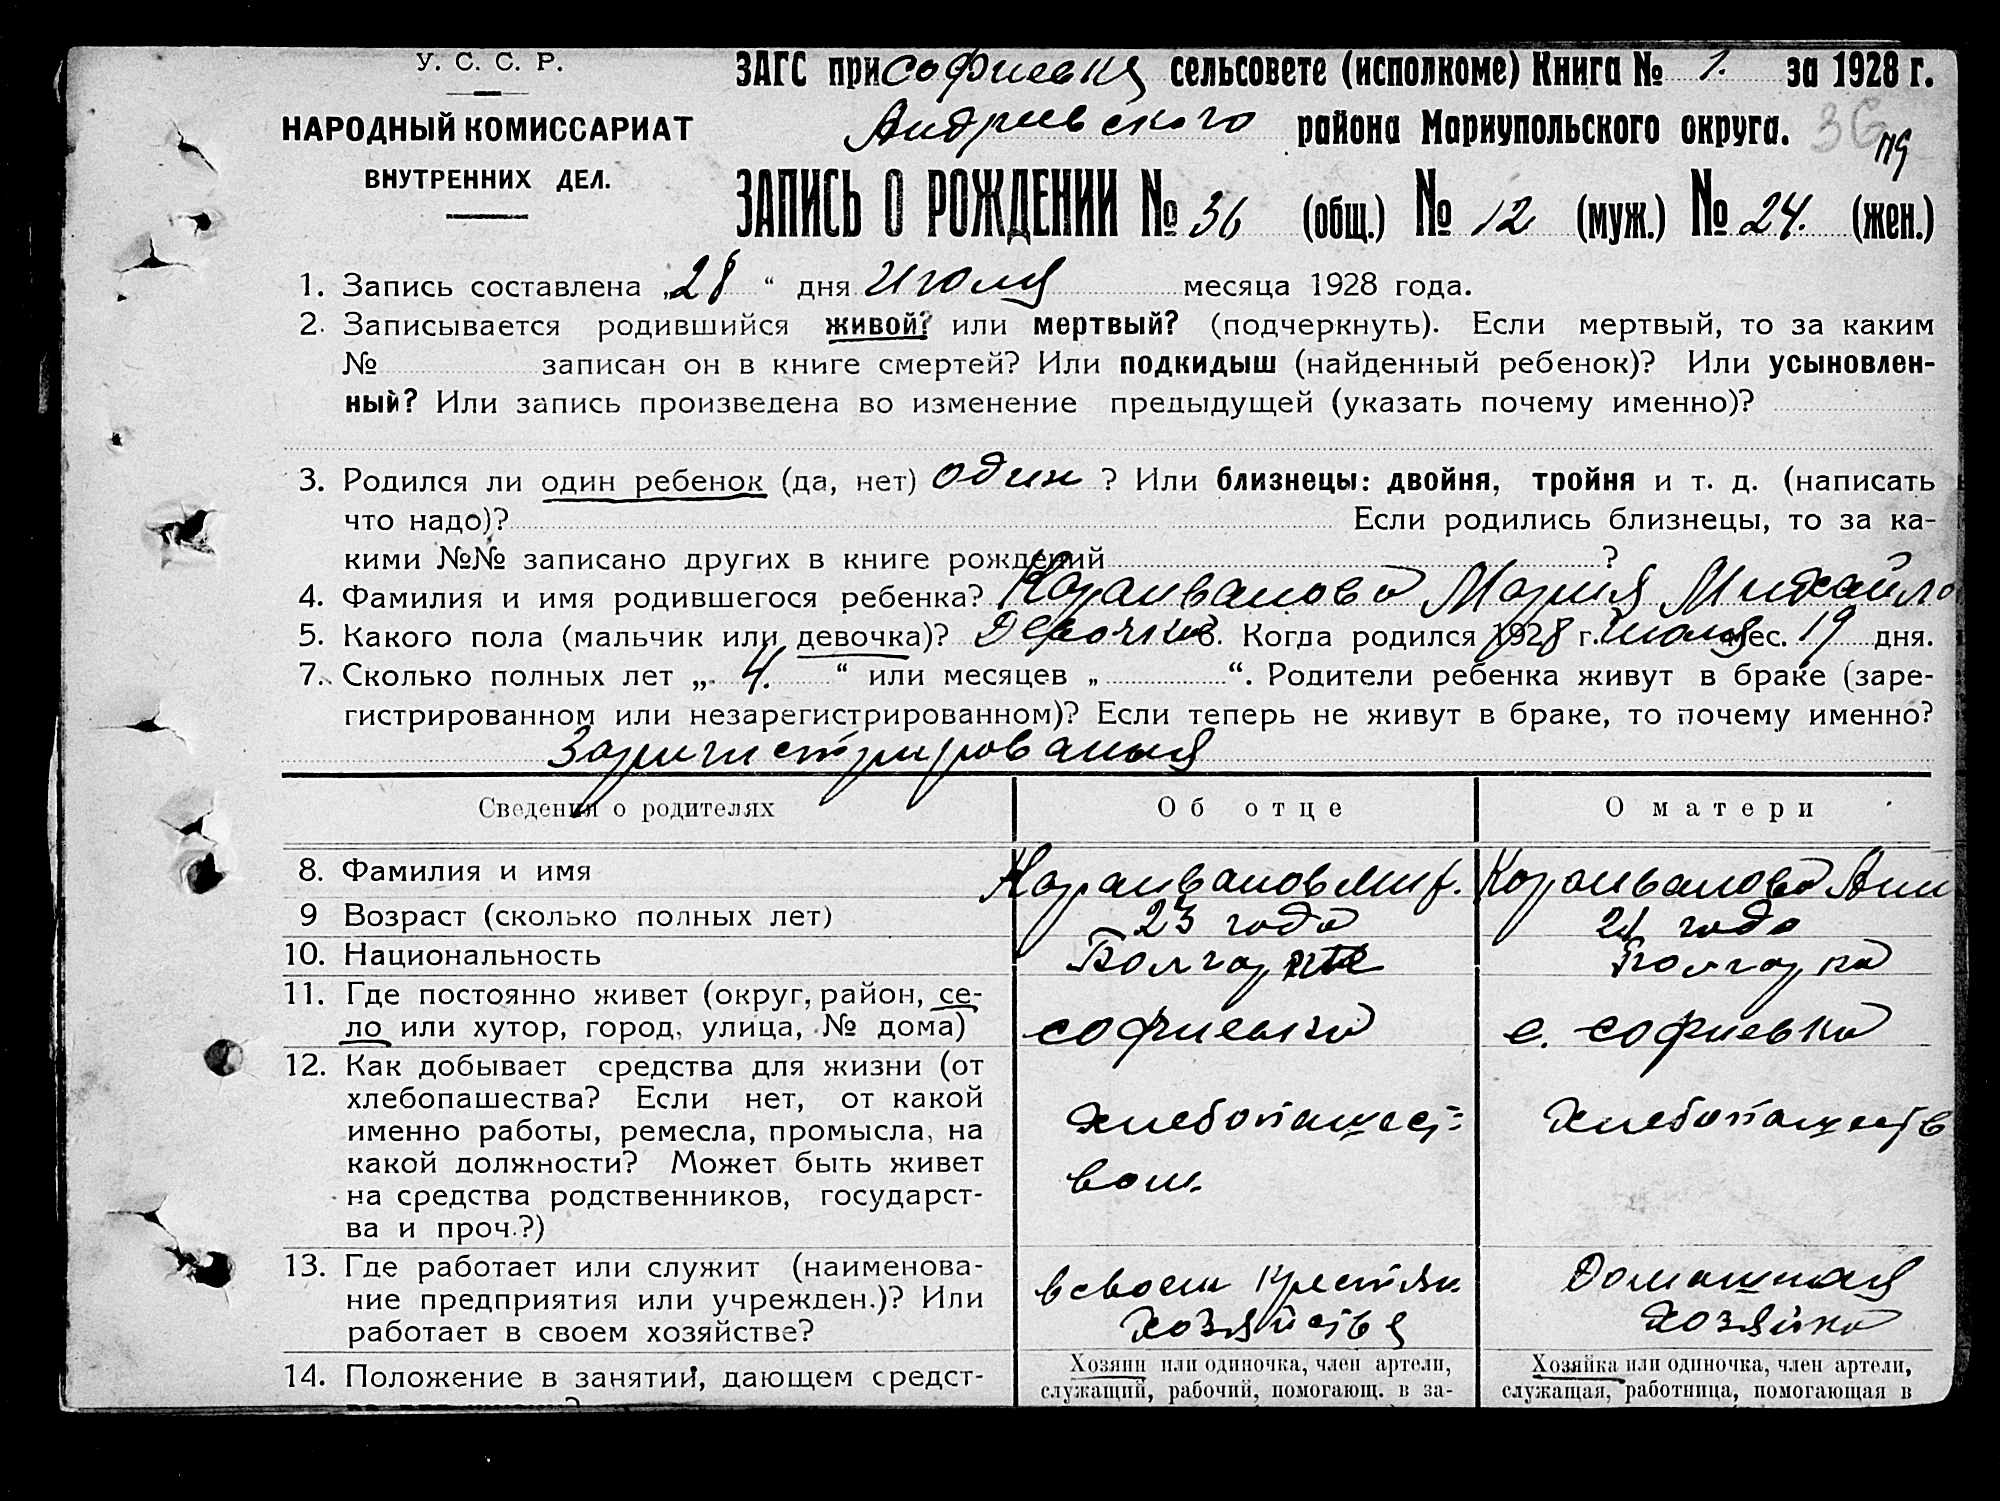 У. С. С. Р.
НАРОДНЫЙ КОМИССАРИАТ
ВНУТРЕННИХ ДЕЛ.
ЗАГС при Софиевка сельсовете (исполкоме) Книга № 1. за 1928 г.
Андриевского района Мариупольского округа. 36
ЗАПИСЬ О РОЖДЕНИИ № 36 (общ.) № 12 (муж.) № 24. (жен.)
1. Запись составлена „28“ дня Июля месяца 1928 года.
2. Записывается родившийся живой? или мертвый? (подчеркнуть). Если мертвый, то за каким
№ записан он в книге смертей? Или подкидыш (найденный ребенок)? Или усыновлен-
ный? Или запись произведена во изменение предыдущей (указать почему именно)?
3. Родился ли один ребенок (да, нет) один ? Или близнецы: двойня, тройня и т. д. (написать
что надо)? Если родились близнецы, то за ка-
кими №№ записано других в книге рождений ?
4. Фамилия и имя родившегося ребенка? Караиванова Мария Михайло
5. Какого пола (мальчик или девочка)? Девочка 6. Когда родился 1928 г. июля мес. 19 дня.
7. Сколько полных лет „ 4. “ или месяцев „ “. Родители ребенка живут в браке (заре-
гистрированном или незарегистрированном)? Если теперь не живут в браке, то почему именно?
Заригистрированыя
Сведения о родителях Об отце О матери
8. Фамилия и имя Караиванов Мих. Караиванова Анн
9 Возраст (сколько полных лет) 23 года 21 года
10. Национальность Болгарин Болгарка
11. Где постоянно живет (округ, район, се-
ло или хутор, город, улица, № дома) софиевка с. софиевка
12. Как добывает средства для жизни (от
хлебопашества? Если нет, от какой
именно работы, ремесла, промысла, на
какой должности? Может быть живет
на средства родственников, государст-
ва и проч.?)
хлебопашест=
вом.
хлебопашеств
13. Где работает или служит (наименова-
ние предприятия или учрежден.)? Или
работает в своем хозяйстве?
в своем крестян.
хозяйства
Домашная
хозяйка
14. Положение в занятии, дающем средст-
Хозяин или одиночка, член артели,
служащий, рабочий, помогающ. в за-
Хозяйка или одиночка, член артели,
служащая, работница, помогающая в